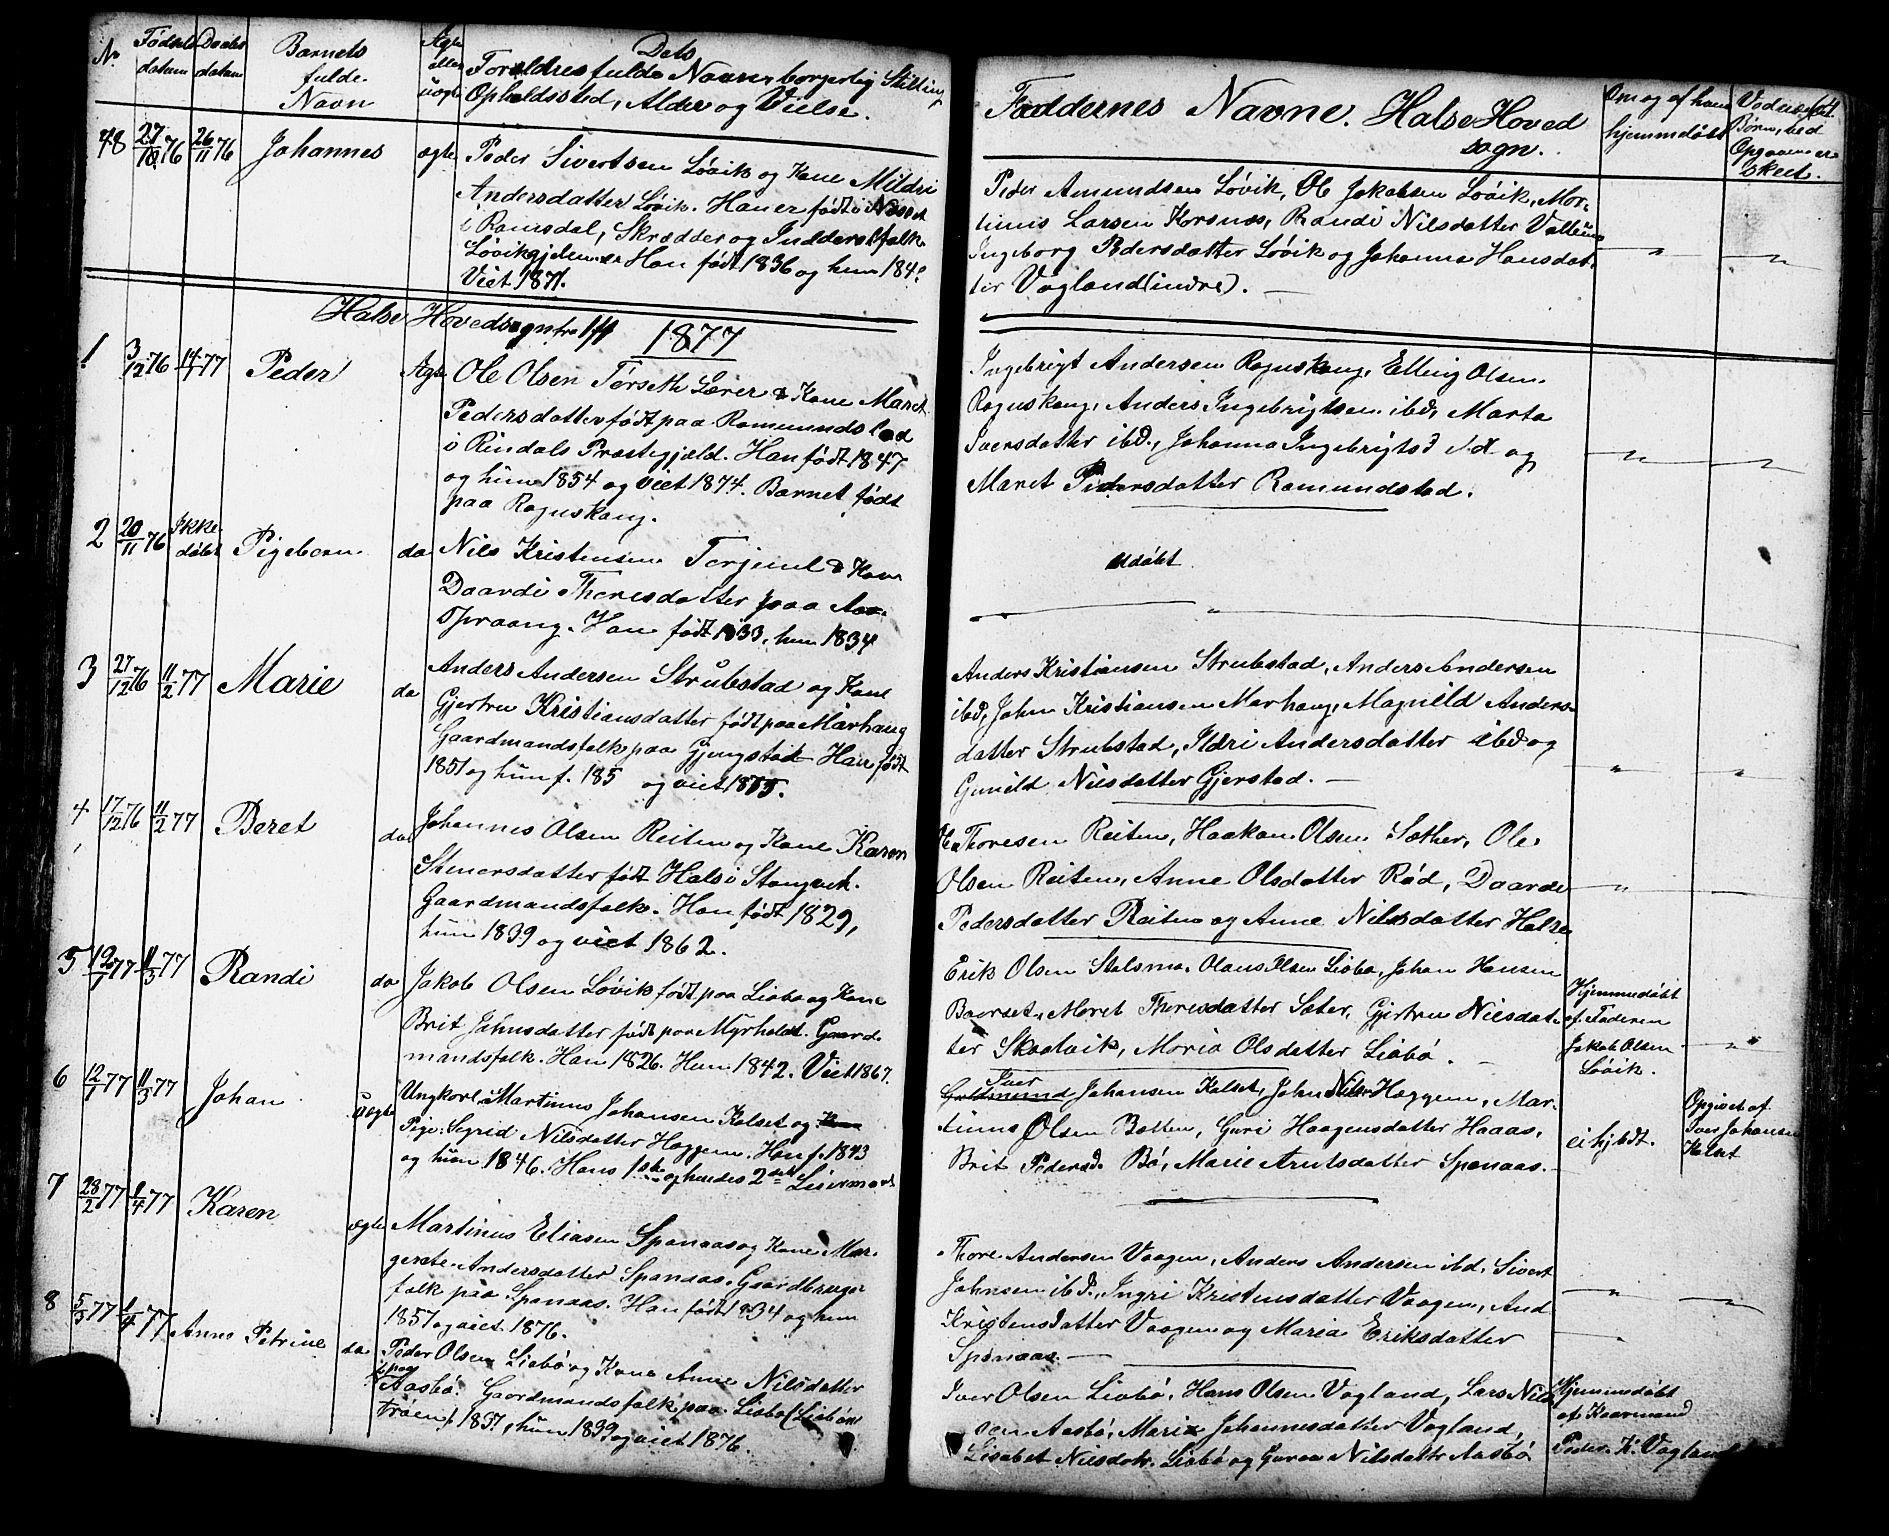 No. Fødsels datum Daabs datum Barnets fulde Navn Ægte eller uægte
Dets Forældres fulde Navn, borgerlig Stilling
Opholdssted, Alder og Vielse.
48 27/10 76 26/11 76 Johannes ægte Peder Sivertsen Løvik og Kone Mildri
Andersdatter Løvik. Han er født i Næsset
i Romsdal, Skrædder og Indderstfolk
Løvik Han født 1836 og hun
Viet 1871.
Halse Hovedsogn fra 1/1 1877
1 3/12 76 14/1 77 Peder Ægte Ole Olsen Torseth Lærer & Kone Maret
Pedersdatter født paa Romundstad
i Rindals Præstegjæld. Han født 1847
og hun 1854 og viet 1874. Barnet født
paa Rognskoug.
2 20/11 76 Ikke døbt Pigebarn do Nils Kristensen Terjeml & Kone
Daardi Thoresdatter paa
Han født 1833, hun 1834
3 27/12 76 11/2 77 Marie do Anders Andersen Strubstad og Kone
Gjertru Kristiansdatter født paa Marhaug
Gaardmandsfolk paa Gjengstad Han født
1851 og hun f. 185 og viet 1875.
4 17/12 76 11/2 77 Beret do Johannes Olsen Reiten og Kone Karen
Stenersdatter født Halse i Stangvik.
Gaardmandsfolk. Han født 1829,
hun 1839 og viet 1862.
5 19/1 77 11/3 77 Randi do Jakob Olsen Løvik født paa Liabø og Kone
Brit Johnsdatter født paa Myrholdt. Gaard-
mandsfolk. Han 1826. Hun 1842. Viet 1867.
6 12/1 77 11/3 77 Johan uægte Ungkorl: Martinus Johansen Kalset og Kone
Pige: Sigrid Nilsdatter Hoggem. Han f. 1843
og hun 1846. Hans 1ste og hendes 2det Leiermaal
7 28/2 77 2/4 77 Karen ægte Martinus Eliasen Spanaas og Kone Mar-
grete Andersdatter Spanaas. Gaardbruger-
folk paa Spanaas. Han født 1834 og hun
1851 og viet 1876.
8 5/3 77 2/4 77 Anne Petrine do Peder Olsen Liabø og Kone Anne Nilsdatter
paa Aasbø. Gaardmandsfolk paa Liabø (Liabøe
trøen) f. 1837, hun 1839 og viet 1876.
Faddernes Navne. Halse Hoved
sogn.
Om og af hvem hjemmedøbt
Børn, ved Opgaven er skeet.
Peder Amundsen Løvik, Ole Jakobsen Løvik, Mor-
tinus Larsen Korsnes, Randi Nilsdatter
Ingeborg Pedersdatter Løvik og Johanna Hansdat-
ter Vogland (indre). —
Ingebrigt Andersen Rognskoug, Elling Olsen
Rognskoug, Anders Ingebrigtsen ibd, Marta
Iversdatter ibd., Johanna Ingebrigtsd ibd og
Maret Pedersdatter Romundstad.
udøbt
Anders Kristiansen Strubstad, Anders Andersen
ibd, John Kristiansen Marhaug, Magnild Anders-
datter Strubstad, Ildri Andersdatter ibd og
Gunild Nilsdatter Gjerstad. —
Ole Thoresen Reiten, Haakon Olsen Sæther, Ole
Olsen Reiten, Anne Olsdatter Rød, Daarde
Pedersdatter Reiten og Anne Nilsdatter Halse
Erik Olsen Stolsmo, Olaus Olsen Liabø, Johan Hansen
Baarset, Maret Thoresdatter Sæter, Gjertru Nilsdat-
ter Skaalvik, Maria Olsdatter Liabø.
Hjemmedøbt af Faderen Jakob Olsen Løvik.
Iver
Guldmund Johansen Kalset, John Nilsen Hoggem, Mar-
tinus Olsen Botten, Guri Haagensdatter Haaas,
Brit Pedersd. Bø, Marie Arntsdatter Spanaas. —
ei hj. dbt.
Opgivet af Iver Johansen Kalset
Thore Andersen Vaagen, Anders Andersen ibd, Sivert
Johnsen ibd., Ingri Kristensdatter Vaagen, And
Kristensdatter Vaagen og Maria Eriksdatter
Spanaas. —
Iver Olsen Liabø, Hans Olsen Vogland, Lars Niel-
sen Aasbø, Maria Johannesdatter Vogland,
Lisabet Nilsdatr. Liabø og Guren Nilsdattr Aasbø
Hjemmedøbt af Kaarmand
Peder K. Vogland